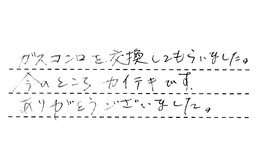 ガスコンロを交換してもらいました。
今のところ カイテキです.
ありがとうございました。